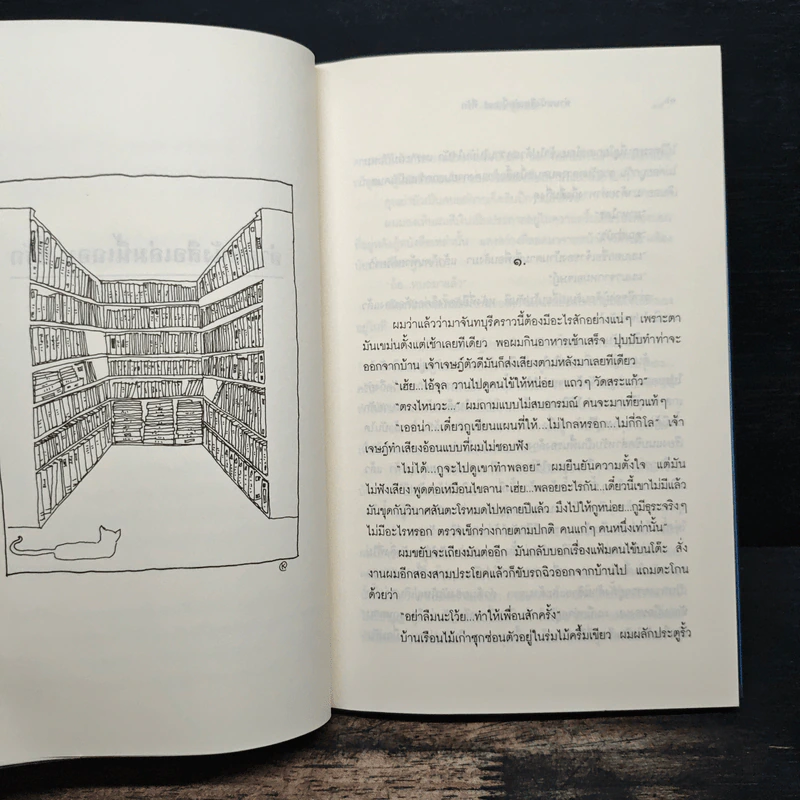 ๑.
ผมว่าแล้วว่ามาจันทบุรีคราวนี้ต้องมีอะไรสักอย่างแน่ๆ เพราะตา
มันเขม่นตั้งแต่เช้าเลยทีเดียว พอผมกินอาหารเช้าเสร็จ ปุบปับทำท่าจะ
ออกจากบ้าน เจ้าเจษฎ์ตัวดีมันก็ส่งเสียงตามหลังมาเลยทีเดียว
"เฮ้ย...ไอ้จุล วานไปดูคนไข้ให้หน่อย แถวๆ วัดสระแก้ว"
"ตรงไหนวะ..." ผมถามแบบไม่สบอารมณ์ คนจะมาเที่ยวแท้ๆ
"เออน่า...เดี๋ยวกูเขียนแผนที่ให้...ไม่ไกลหรอก...ไม่กี่กิโล" เจ้า
เจษฎ์ทำเสียงอ้อนแบบที่ผมไม่ชอบฟัง
"ไม่ได้...กูจะไปดูเขาทำพลอย" ผมยืนยันความตั้งใจ แต่มัน
ไม่ฟังเสียง พูดต่อเหมือนไขลาน "เฮ่ย...พลอยอะไรกัน...เดี๋ยวนี้เขาไม่มีแล้ว
มันขุดกันวินาศสันตะโรหมดไปหลายปีแล้ว มึงไปให้กูหน่อย...กูมีธุระจริงๆ
ไม่มีอะไรหรอก ตรวจเช็กร่างกายตามปกติ คนแก่ๆ คนหนึ่งเท่านั้น"
ผมขยับจะเถียงมันต่ออีก มันกลับบอกเรื่องแฟ้มคนไข้บนโต๊ะ สั่ง
งานผมอีกสองสามประโยคแล้วก็ขับรถฉิวออกจากบ้านไป แถมตะโกน
ด้วยว่า
"อย่าลืมนะโว้ย...ทำให้เพื่อนสักครั้ง"
บ้านเรือนไม้เก่าซุกซ่อนตัวอยู่ในร่มไม้ครึ้มเขียว ผมผลักประตูรั้ว